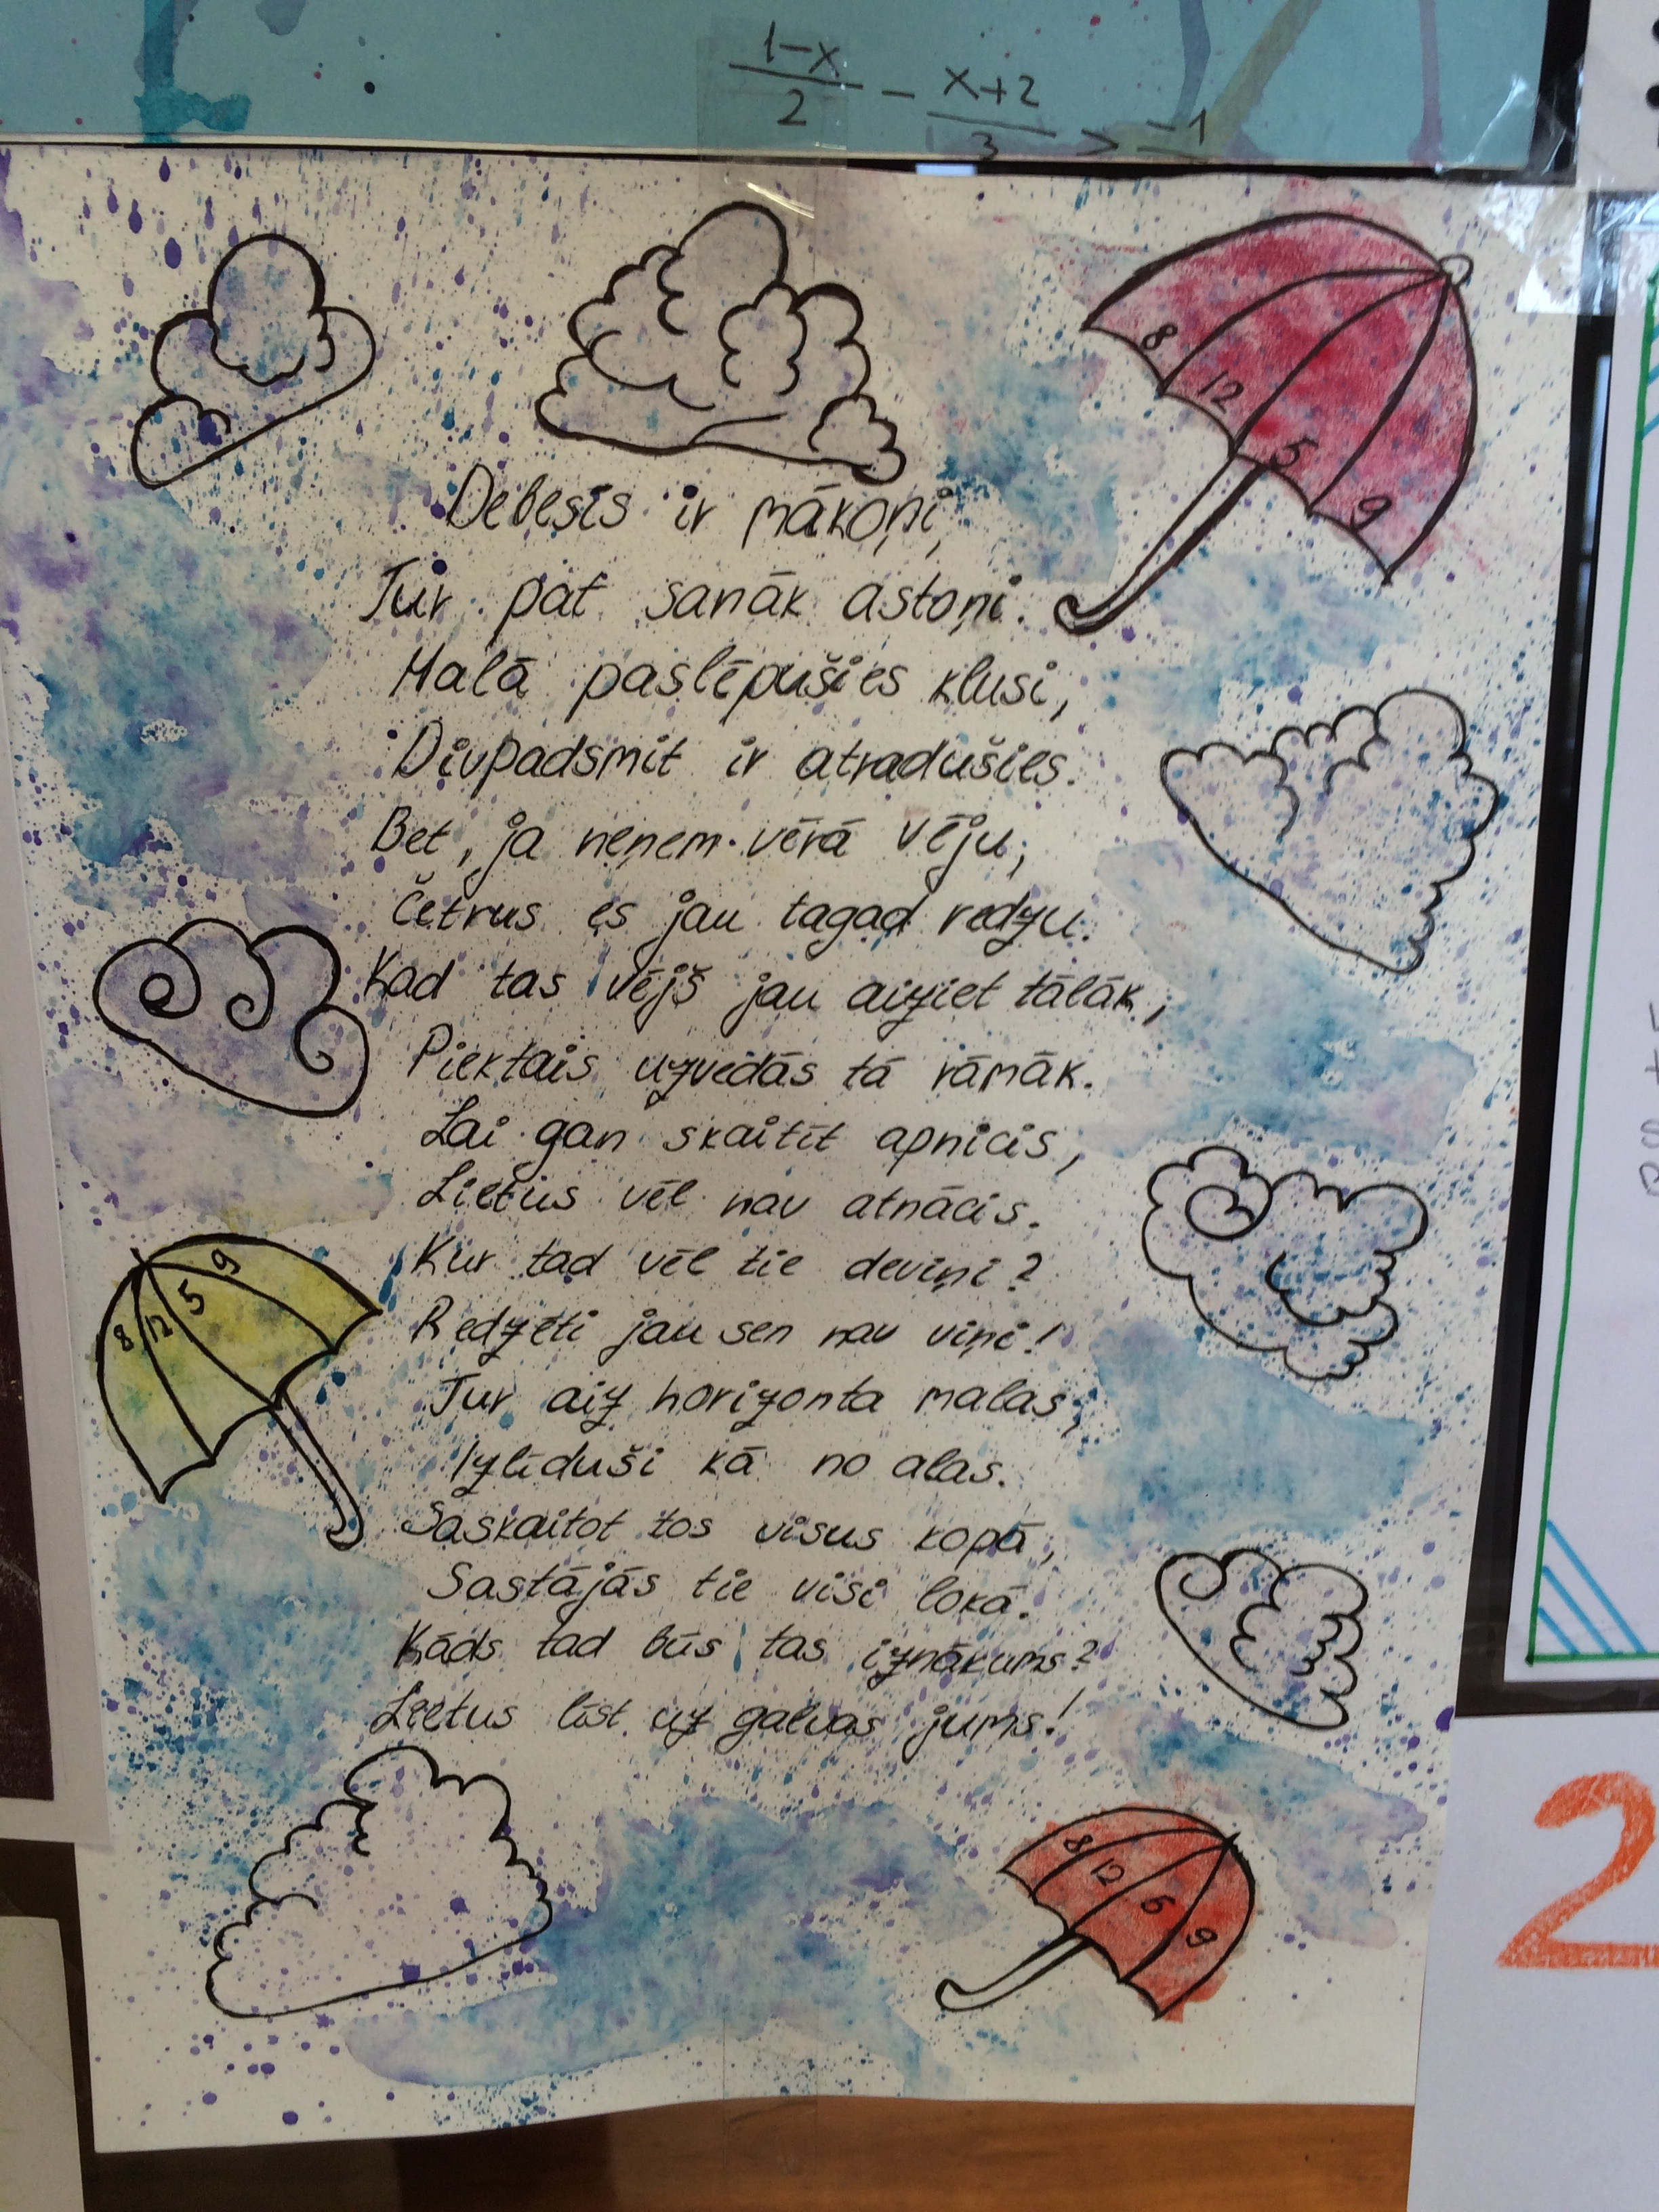 1-x / 2 - x+2 / 3 > -1
8 12 5 9
Debesīs ir mākoņi,
Tur pat sanāk astoņi.
Malā paslēpušies klusi,
Divpadsmit ir atradušies.
Bet, ja neņem vērā vēju,
Četrus es jau tagad redzu.
Kad tas vējš jau aiziet tālāk,
Piektais uzvedās tā rāmāk.
Lai gan skaitīt apnicis,
Lietus vēl nav atnācis.
Kur tad vēl tie deviņi?
Redzēti jau sen nav viņi!
Tur aiz horizonta malas,
Izlīduši kā no alas.
Saskaitot tos visus kopā,
Sastājās tie visi lokā.
Kāds tad būs tas iznākums?
Lietus līst uz galvas jums!
8 12 5 9
8 12 5 9
2